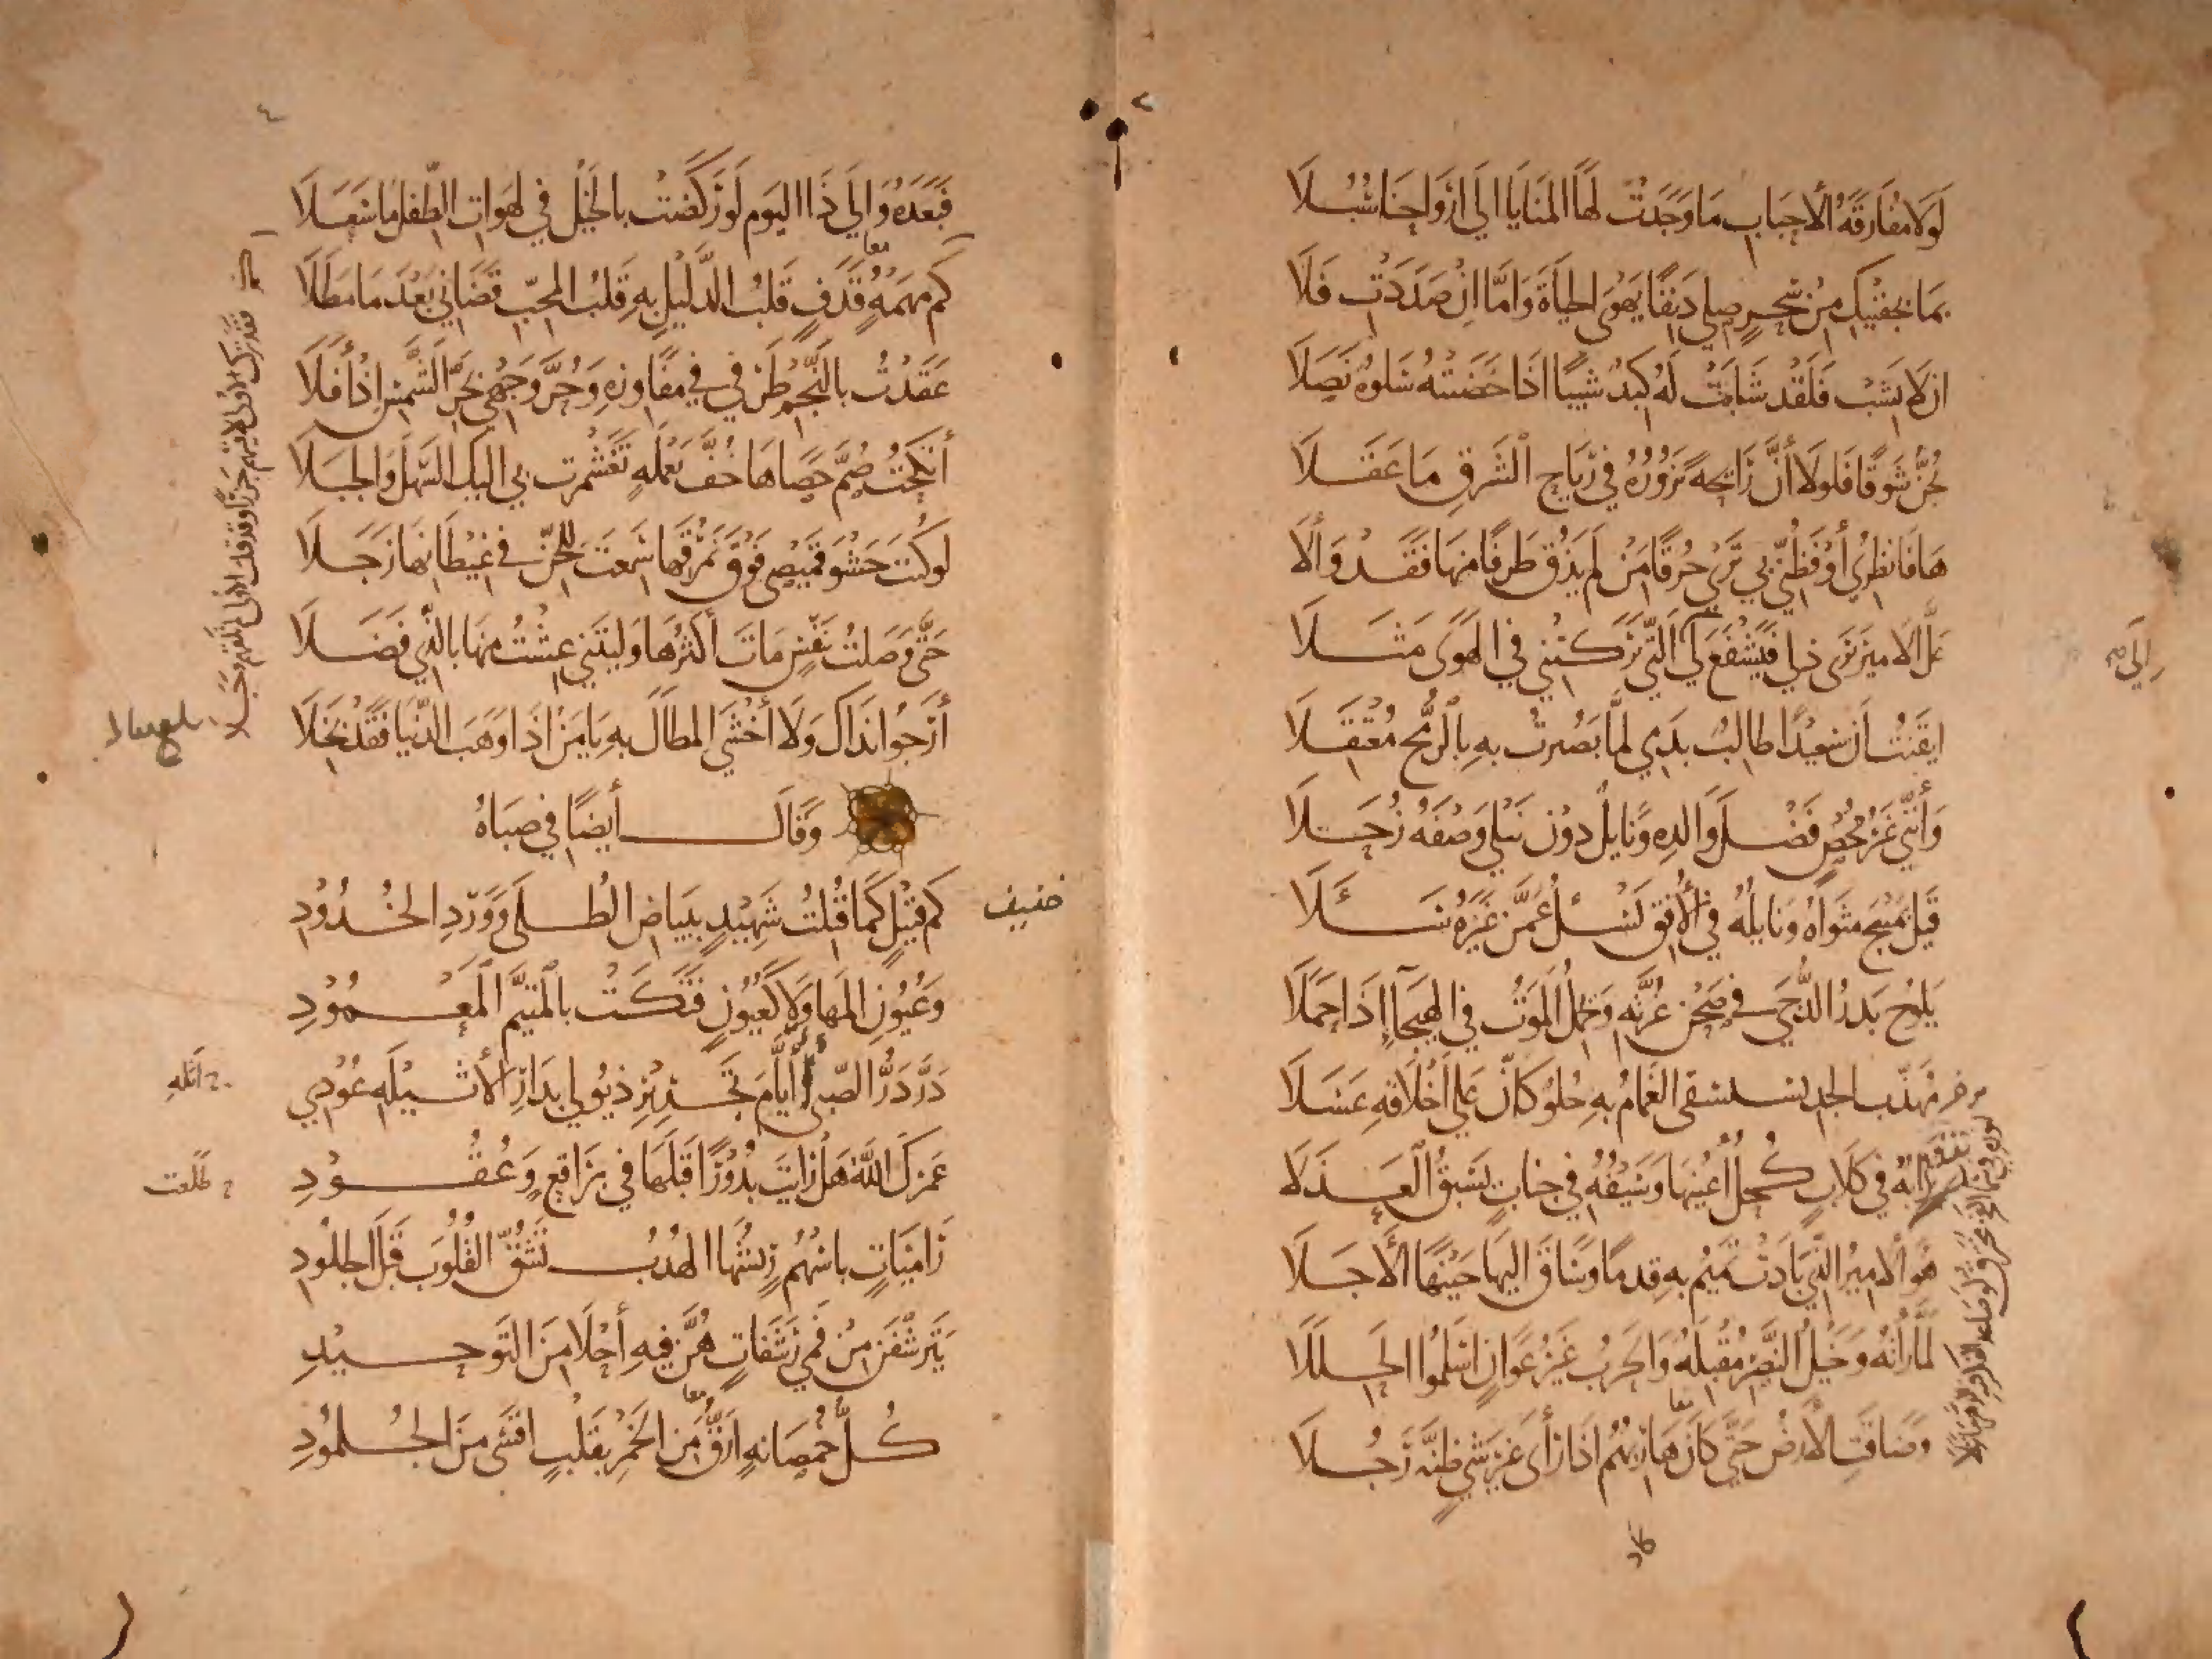 لَولَا مُفَارَقَةُ الأَحبَابِ مَا وَجَدَتْ لَهَا المَنَايَا إلَى أَرْوَاحِنَا سُبُلَا
بِمَا بِجَفْنَيكِ مِنْ سِحْرٍ صِلِي دَنِفًا يَهْوَى الحَيَاةَ وَأَمَّا إِنْ صَدَدْتِ فَلَا
إِنْ لَا يَشِبْ فَلَقَدْ شَابَتْ لَهُ كَبِدٌ شَيْبًا إِذَا خَضَبَتْهُ سَلْوَةٌ نَصَلَا
يُجَنُّ شَوقًا فَلَولَا أَنَّ رَائِحَةً تَزُورُهُ فِي رِيَاحِ الشَّرقِ مَا عَقَلَا
هَا فَانظُرِي أَوْ فَظُنِّي بِي تَرَيْ حُرَقًا مَنْ لَمْ يَذُقْ طَرَفًا مِنهَا فَقَدْ وَأَلَا
عَلَّ الأَمِيرَ يَرَى ذُلِّي فَيَشْفَعَ لِي إِلَى الَّتِي تَرَكَتْنِي فِي الهَوَى مَثَلَا
إِلَى صح
أَيقَنْتُ أَنَّ سَعِيدًا طَالِبٌ بِدَمِي لَمَّا بَصُرْتُ بِهِ بِالرُّمْحِ مُعْتَقِلَا
وَأَنَّنِي غَيْرُ مُحْصٍ فَضْلَ وَالِدِهِ وَنَايِلٌ دُونَ نَيْلِي وَصْفَهُ زُحَلَا
قَيْلٌ بِمَنْبِجَ مَثوَاهُ وَنَايِلُهُ فِي الأُفقِ يَسْئَلُ عَمَّنْ غَيْرَهُ سَئَلَا
يَلُوحُ بَدْرُ الدُّجَى فِي صَحْنِ غُرَّتِهِ وَيَحمِلُ المَوْتُ فِي الهَيجَآءِ إِذَا حَمَلَا
مُهَذَّبُ الجَدِّ يُسْتَسْقَى الغَمَامُ بِهِ حُلْوٌ كَأَنَّ عَلَى أَخْلَاقِهِ عَسَلَا
تُرَابُهُ فِي كِلَابٍ كُحْلُ أَعْيُنِهَا وَسَيْفُهُ فِي جَنَابٍ يَسْبِقُ العَذَلَا
هُوَ الأَمِيرُ الَّذِي بَادَتْ تَمِيمُ بِهِ قِدْمًا وَسَاقَ إِلَيهَا حَيْنُهَا الأَجَلَا
لَمَّا رَأَتْهُ وَخَيْلُ النَّصْرِ مُقْبِلَةٌ وَالحَرْبُ غَيْرُ عَوَانٍ أَسْلَمُوا الحِلَلَا
وَضَاقَتِ الأَرْضُ حَتَّى كَانَ هَارِبُهُمْ إِذَا رَأَى غَيْرَ شَيٍ ظَنَّهُ رَجُلَا
فَبَعْدَهُ وَإِلَى ذَا اليَوم لَوْ رَكَضَتْ بِالخَيْلِ فِي لَهَوَاتِ الطِّفْلِ مَا سَعَلَا
فَقَدْ تركتَ الأُولى لاقيتهم جَزَرًا وقد قتلت الأولى لم تلقهم وَجَلَا
كَمْ مَهْمَهٍ قَذَفٍ قَلْبُ الدَّلِيلِ بِهِ قَلبُ المُحِبِّ قَضَانِي بَعْدَ مَا مَطَلَا
معا
عَقَدْتُ بِالنَّجْمِ طَرْفِي فِي مَفَاوِزِهِ وَحُرَّ وَجْهِي بِحَرِّ الشَّمْسِ إِذْ أَفَلَا
أَنْكَحْتُ صُمَّ حَصَاهَا خُفَّ يَعْمَلَةٍ تَغَشْمَرَتْ بِي إِلَيكَ السَّهْلَ وَالجَبَلَا
لَوكُنتَ حَشْوَ قَمِيصِي فَوْقَ نُمْرُقِهَا سَمِعْتَ لِلجِنِّ فِي غِيْطَانِهَا زَجَلَا
حَتَّى وَصَلْتُ بِنَفْسٍ مَاتَ أَكْثَرُهَا وَلَيتَنِي عِشْتُ مِنهَا بِالَّذِي فَضَلَا
أَرْجُوا نَدَاكَ وَلَا أَخْشَى المِطَالَ بِهِ يَا مَنْ إِذَا وَهَبَ الدُّنْيَا فَقَدْ بَخِلَا
وَقَالَ أَيضًا فِي صِبَاهُ
خفيف
كَمْ قَتِيْلٍ كَمَا قُتِلْتُ شَهِيْدٍ بِبَيَاضِ الطُّلَى وَوَرْدِ الخُدُودِ
وَعُيُونِ المَهَا وَلَا كَعُيُونٍ فَتَكَتْ بِالمُتَيَّمِ المَعْمُوْدِ
دَرَّ دَرُّ الصِّبَى أَيَّامَ تَجْرِيرِ ذُيُولِي بِدَارِ الأَثيْلَةِ عُوْدِي
خ أَثْلَةِ
عَمْرَكَ اللَّهُ هَلْ رَأَيتَ بُدُوْرًا قَبلَهَا فِي بَرَاقِعٍ وَعُقُوْدِ
خ طلعت
رَامِيَاتٍ بِأَسْهُمٍ رِيشُهَا الهُدْبُ تَشُقُّ القُلُوبَ قَبلَ الجُلُودِ
يَتَرَشَّفْنَ مِنْ فَمِي رَشَفَاتٍ هُنَّ فِيهِ أَحْلَا مِنَ التَّوحِيْدِ
كُلُّ خُمْصَانَةٍ أَرَقُّ مِنَ الخَمْرِ بِقَلْبٍ أَقْسَى مِنَ الجُلمُوْدِ
معا